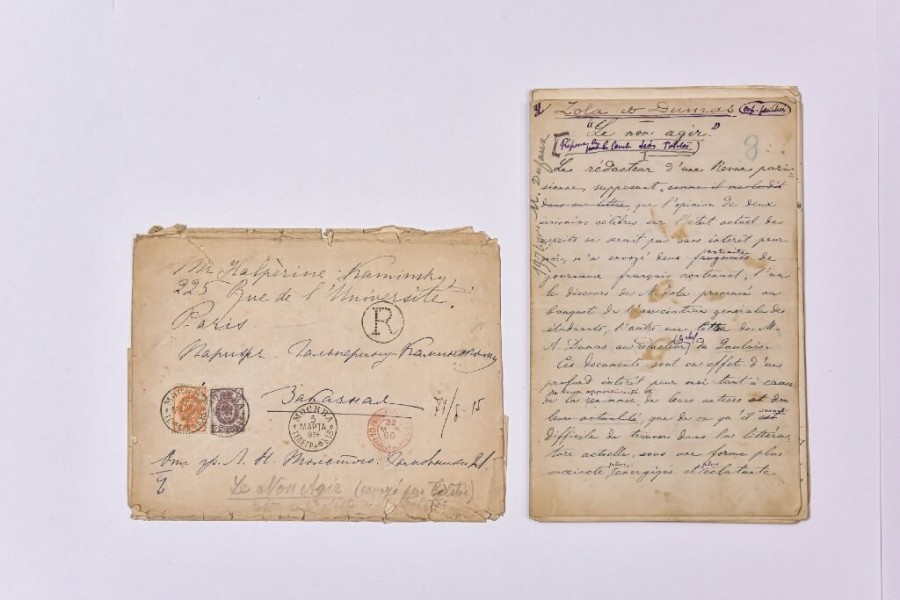 Mr Halpérine-Kaminsky
225 Rue de l'Université
Paris
R
Парижъ. Гальперину-Каминскому
Заказная
МОСКВА
5
МАРТА
Отъ гр. Л. Н. Толстого.
Le Non Agir (envoyé par Tolstoï
Zola et Dumas
"Le non agir."
Réponse
par le Comte Léon Tolstoï
8
M. Dumas
Le rédacteur d'une Revue pari-
sienne, supposant, comme il me le dit
dans sa lettre, que l'opinion de deux
écrivains célèbres sur l'état actuel des
esprits ne serait pas sans intérêt pour
moi, m'a envoyé deux fragments de
journaux français contenant, l'un
le discours de M. Zola prononcé au
banquet de l'association générale des
étudiants, l'autre une lettre de M.
A. Dumas au rédacteur du Gaulois.
Ces documents sont en effet d'un
profond intérêt pour moi tant à cause
de la renommée de leurs auteurs et de
leur actualité, que de ce qu'il
difficile de trouver dans la littéra-
ture actuelle, sous une forme plus
succincte, plus énergique et plus éclatante